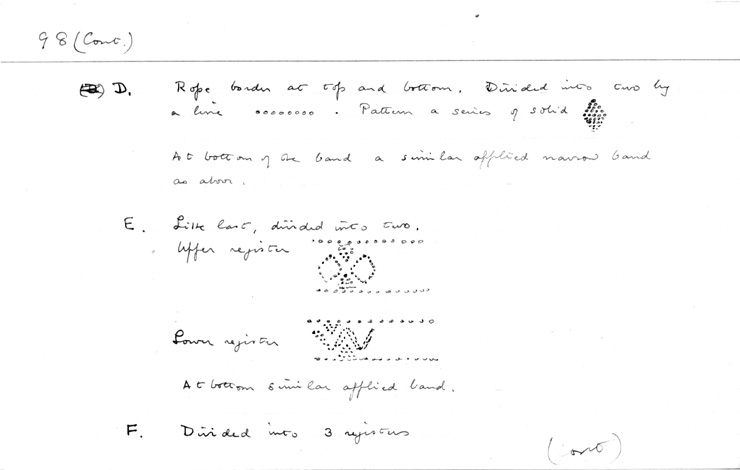 98 (Cont.)
(B) D. Rope border at top and bottom. Divided into two by
a line oooooooo . Pattern a series of solid
At bottom of the band a similar applied narrow band
as above.
E. Like last, divided into two.
Upper register
Lower register
At bottom similar applied band.
F. Divided into 3 registers
(Cont)